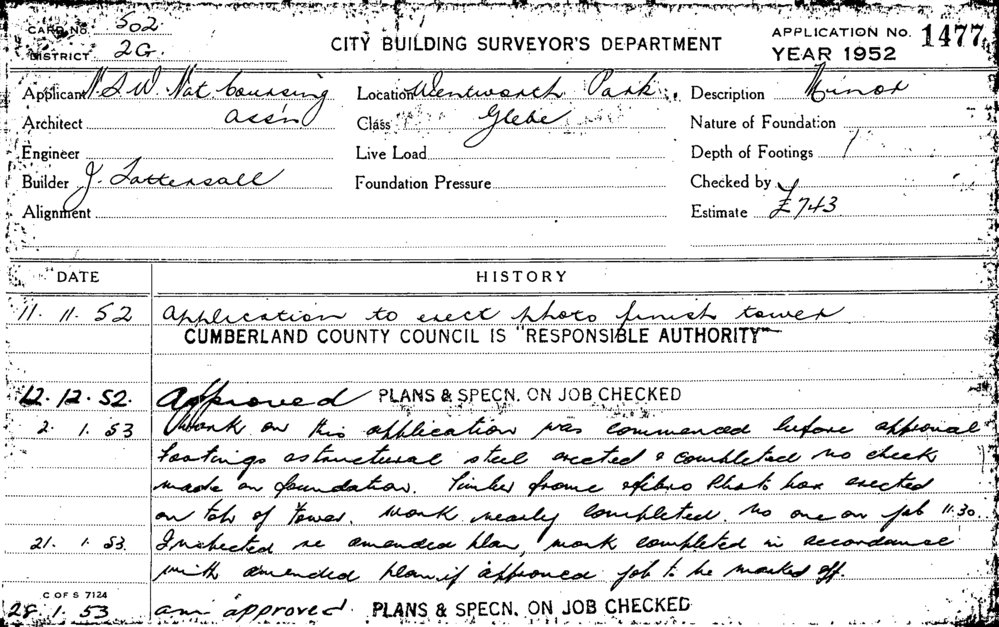 CARD No. 502
DISTRICT 2G.
CITY BUILDING SURVEYOR'S DEPARTMENT
APPLICATION No. 1477
YEAR 1952
Applicant N.S.W. Nat Coursing
Location Wentworth Park,
Description Minor
Architect Ass'n
Class Glebe
Nature of Foundation
Engineer
Live Load
Depth of Footings
Builder J. Tattersall
Foundation Pressure
Checked by
Alignment
Estimate £743
DATE HISTORY
11. 11. 52 Application to erect photo finish tower
CUMBERLAND COUNTY COUNCIL IS "RESPONSIBLE AUTHORITY"
12. 12. 52. Approved PLANS & SPECN. ON JOB CHECKED
2. 1. 53 Work on this application was commenced before approval
footings & structural steel erected & completed no check
made on foundation. Timber frame & fibro Photo box erected
on top of Tower. Work nearly completed. No one on job 11.30.
21. 1. 53. Inspected re amended plan, work completed in accordance
with amended plan, if approved job to be marked off.
C OF S 7124
28. 1. 53 am approved PLANS & SPECN. ON JOB CHECKED